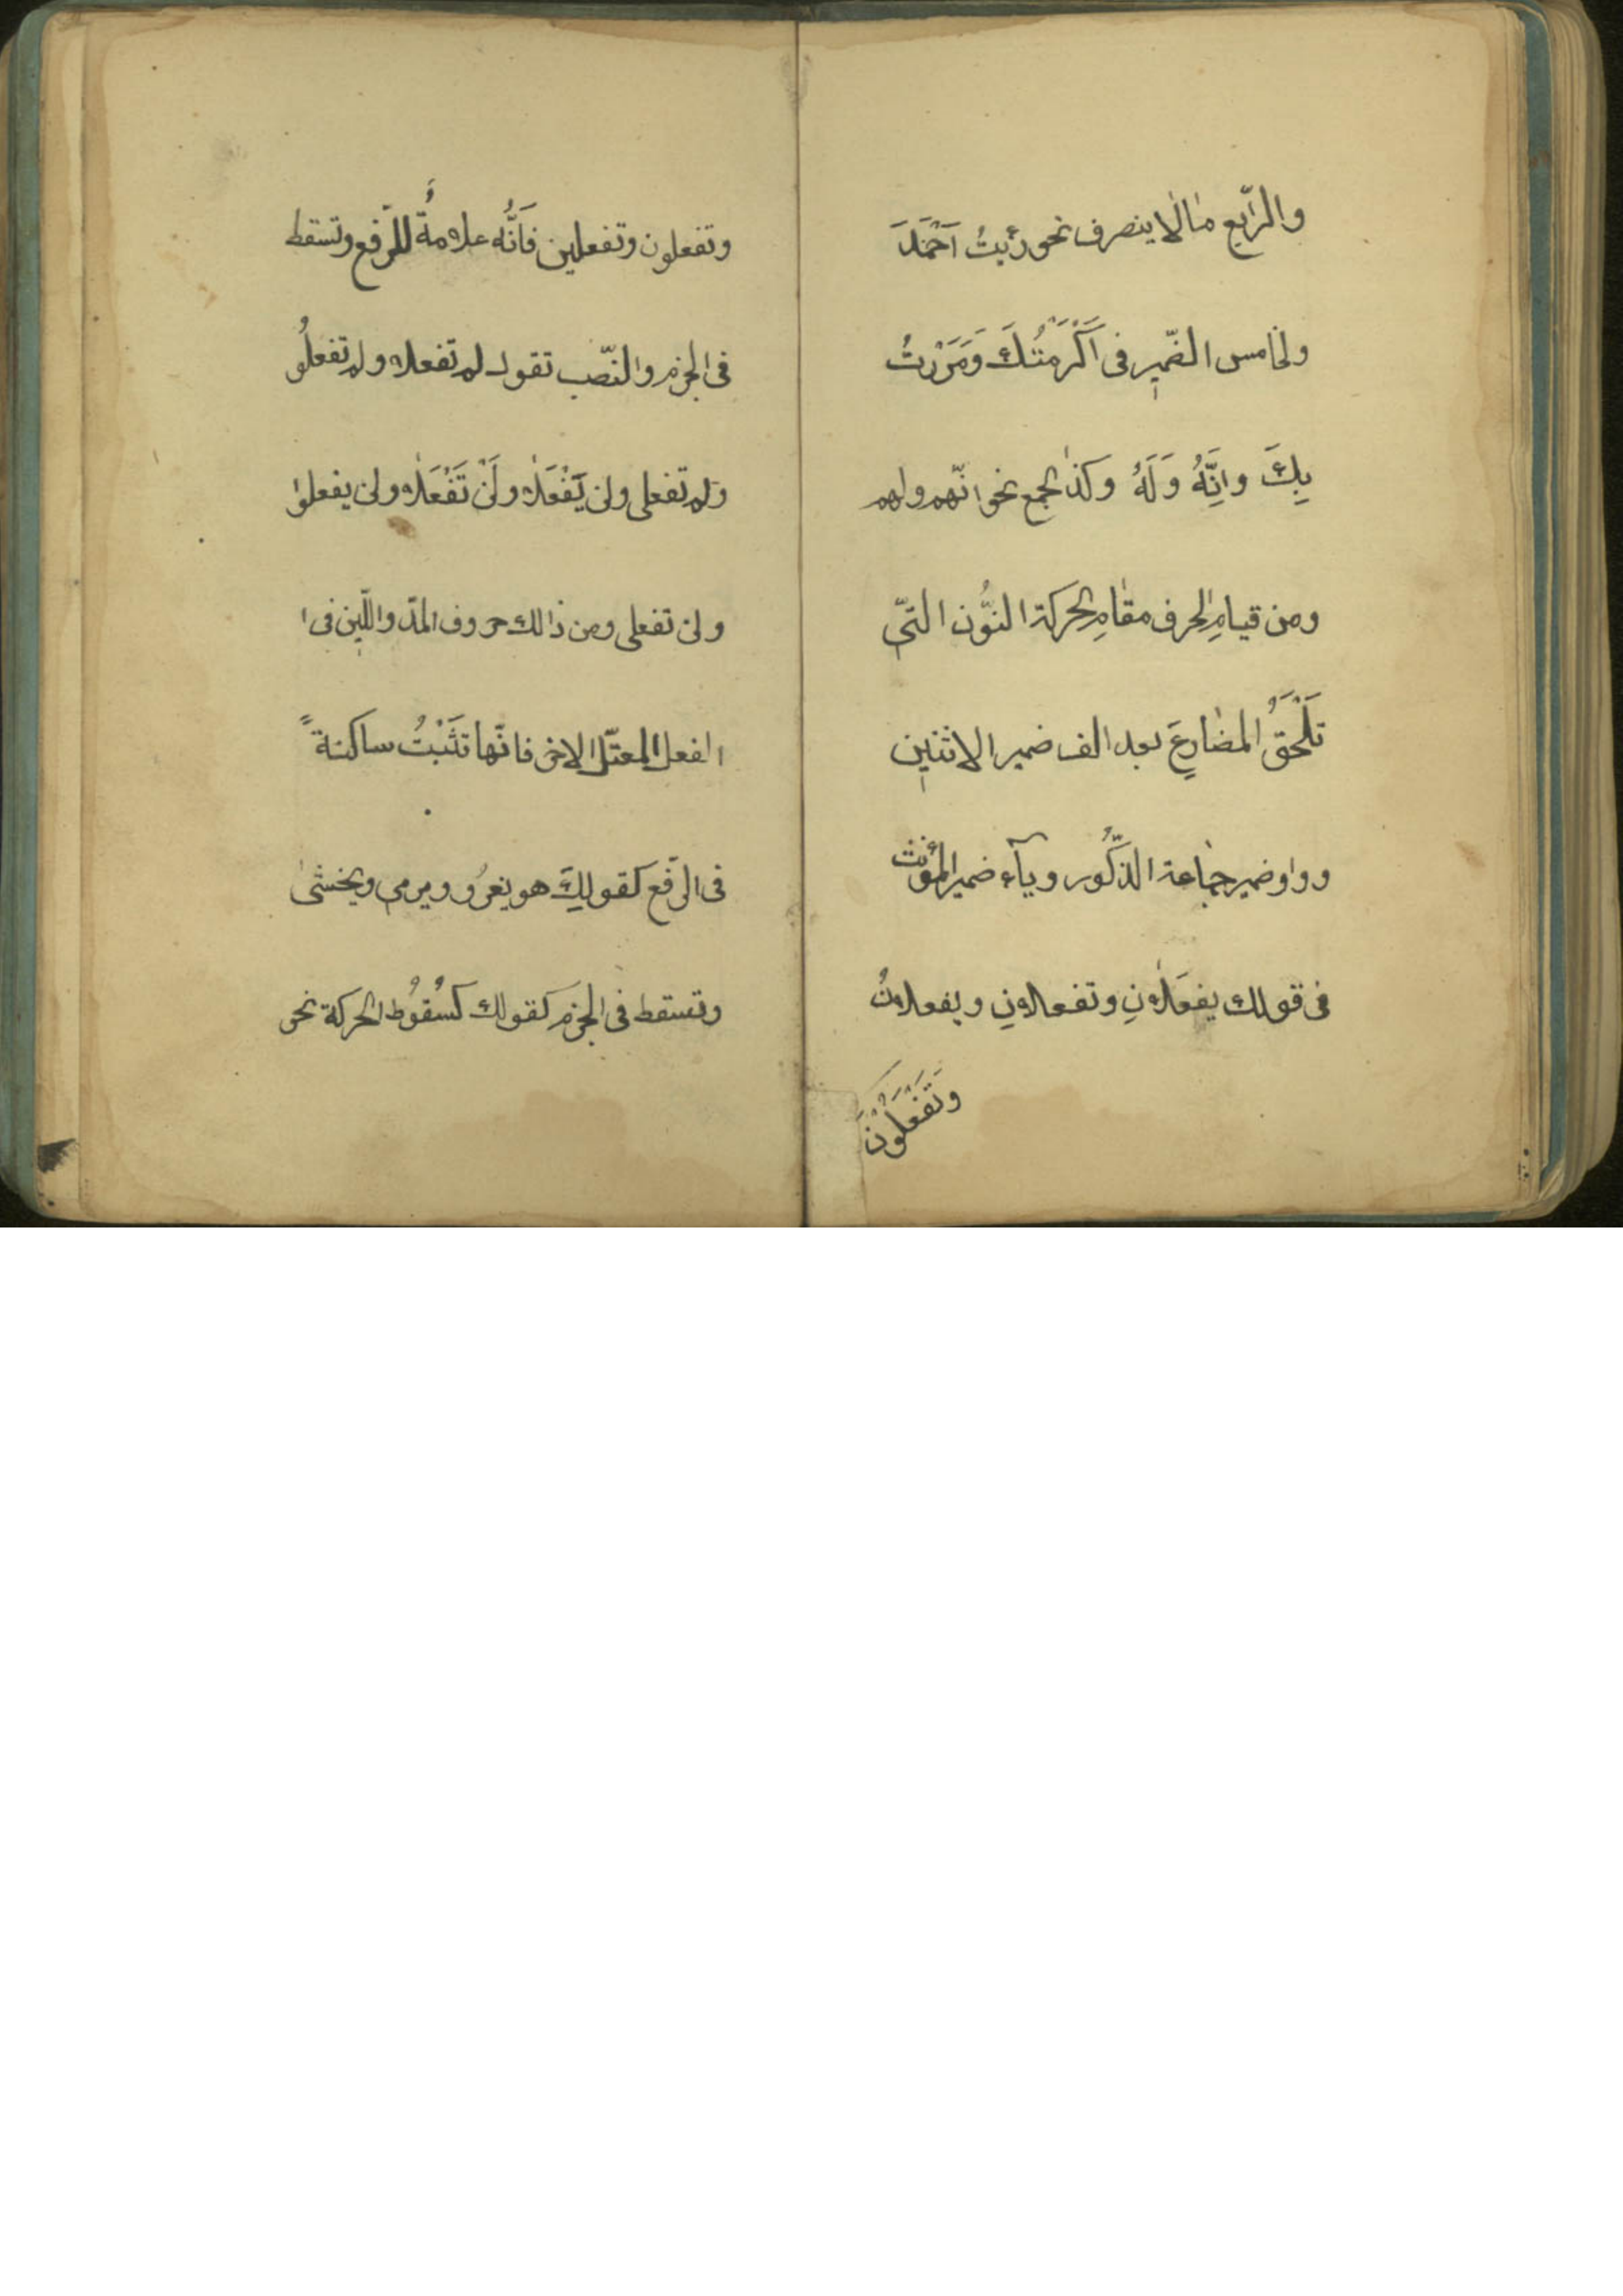 والرّابع مالا ينصرف نحو رئيتُ اَحْمَدَ
ولخامس الضّمير في اَكْرَمْتُكَ وَمَرَرْتُ
بِكَ وانَِّهُ وَلَهُ وكذا لجمع نحو انّهم ولهم
ومن قيامِ الحرف مقامِ الحركة النُّون الّتي
تَلْحَقُ المضارِعَ بعد الف ضمير الاثنين
وواو ضمير جماعة الذّكُور ويآء ضمير المؤنّث
في قولك يفعَلانِ وتفعلانِ ويفعلونُ
وَتَفْعَلُوْنَ
وتفعلون وتفعلين فَانَّه علامةٌ للرّفع وتسقط
في الجزم والنّصب تقول لم تفعلا ولم تفعلُو
ولم تفعلى ولن يَفْعَلا ولَنْ تَفْعَلا ولن يفعلوا
ولن تفعلى ومن ذالك حروف المدّ واللّين في ا
الفعل المعتلّ الاخر فانّها تَثْبُتُ ساكنةً
في الرّفع كقولِكَ هو يغزُو ويرمي ويخشىٰ
وتسقط في الجزم كقولك كسُقُوط الحركة نحو